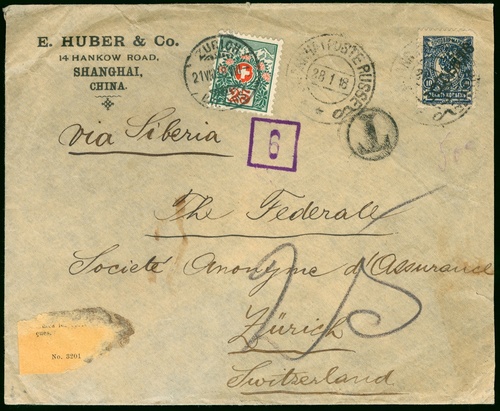 E. HUBER & Co.
14 HANKOW ROAD,
SHANGHAI,
CHINA.
ZÜRICH
21 VII
25
28 1 18
T
6
via Siberia
The Federale
Société Anonyme d'Assurance
Zürich
Switzerland
25
No. 3201